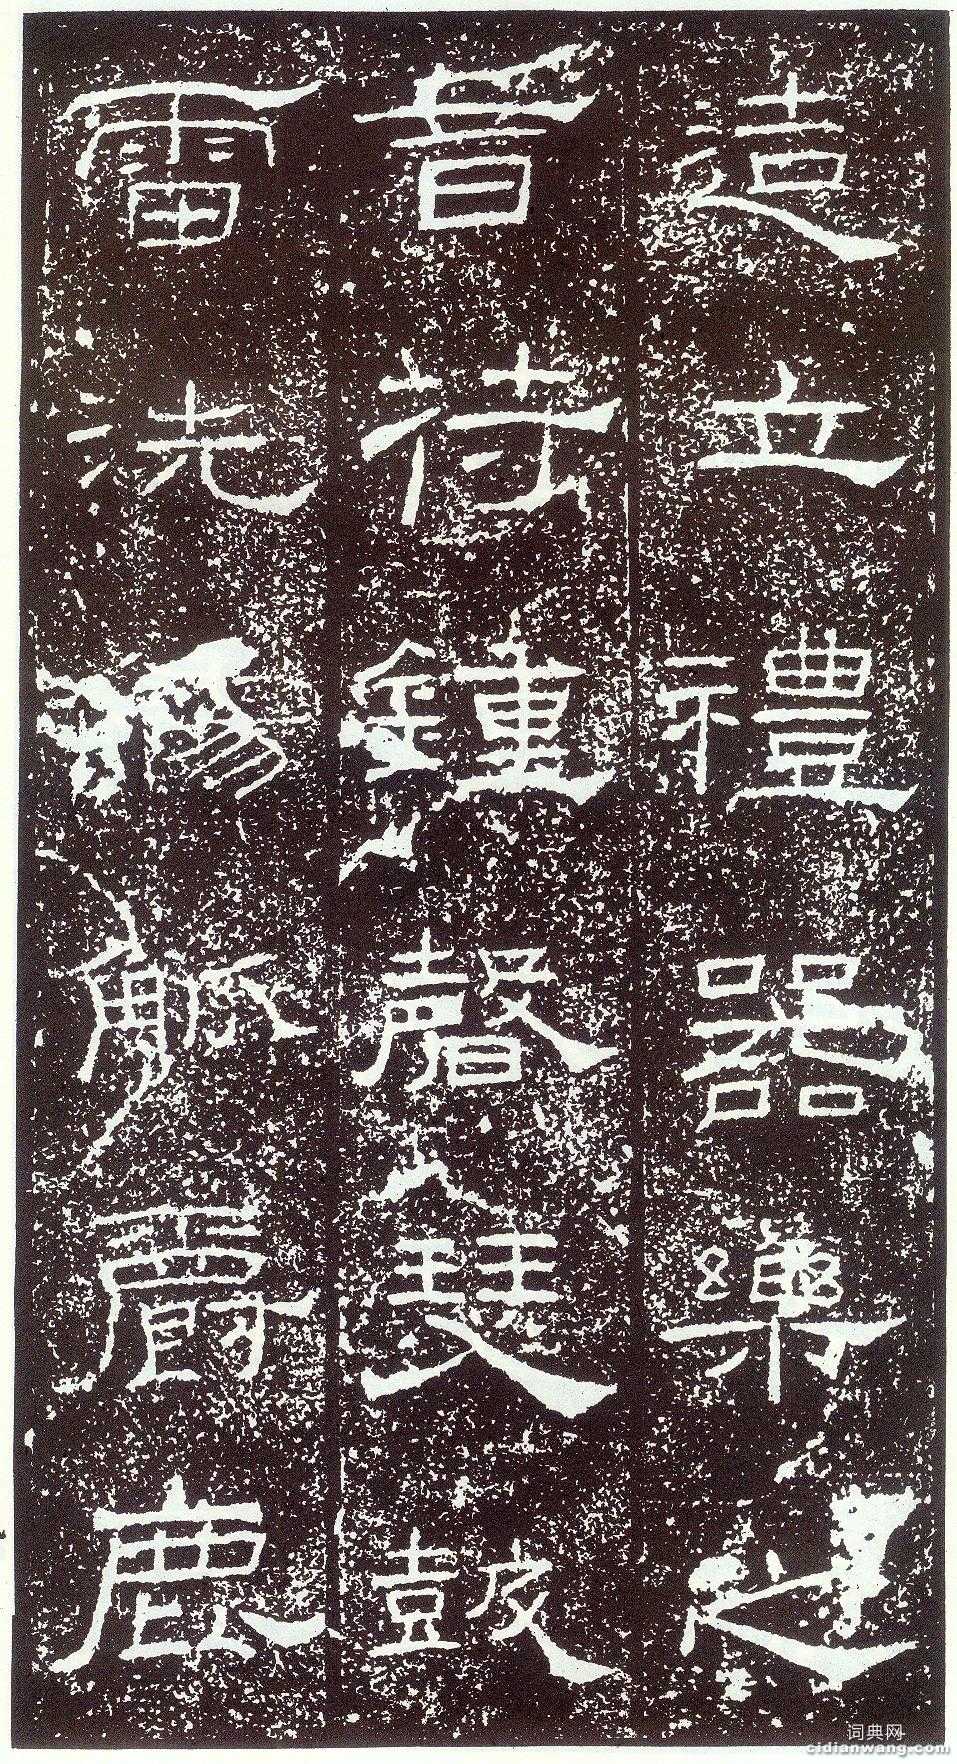 造立禮器樂之
音符鍾磬瑟鼓
雷洗觴觚爵鹿
词典网
cidianwang.com